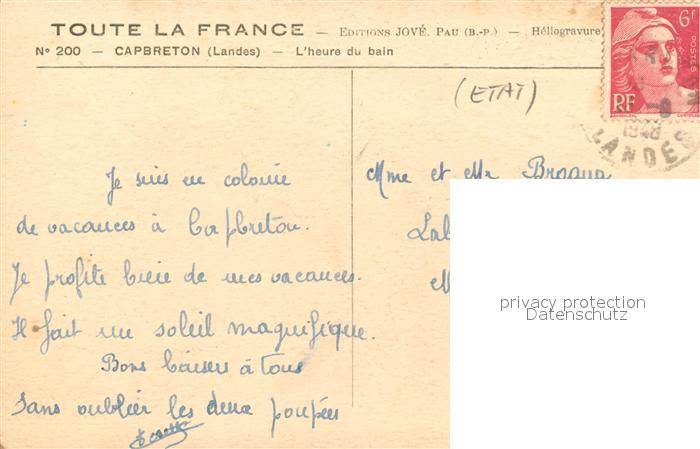 TOUTE LA FRANCE — EDITIONS JOVÉ. PAU (B.-P.) — Héliogravure
N° 200 — CAPBRETON (Landes) — L'heure du bain
6F
POSTES
RF
1948
LANDES
(ETAT)
Mme et Mr
Je suis en colonie
de vacances à Capbreton.
Je profite bien de mes vacances.
Il fait un soleil magnifique.
Bons baisers à tous
Sans oublier les deux poupées
privacy protection
Datenschutz